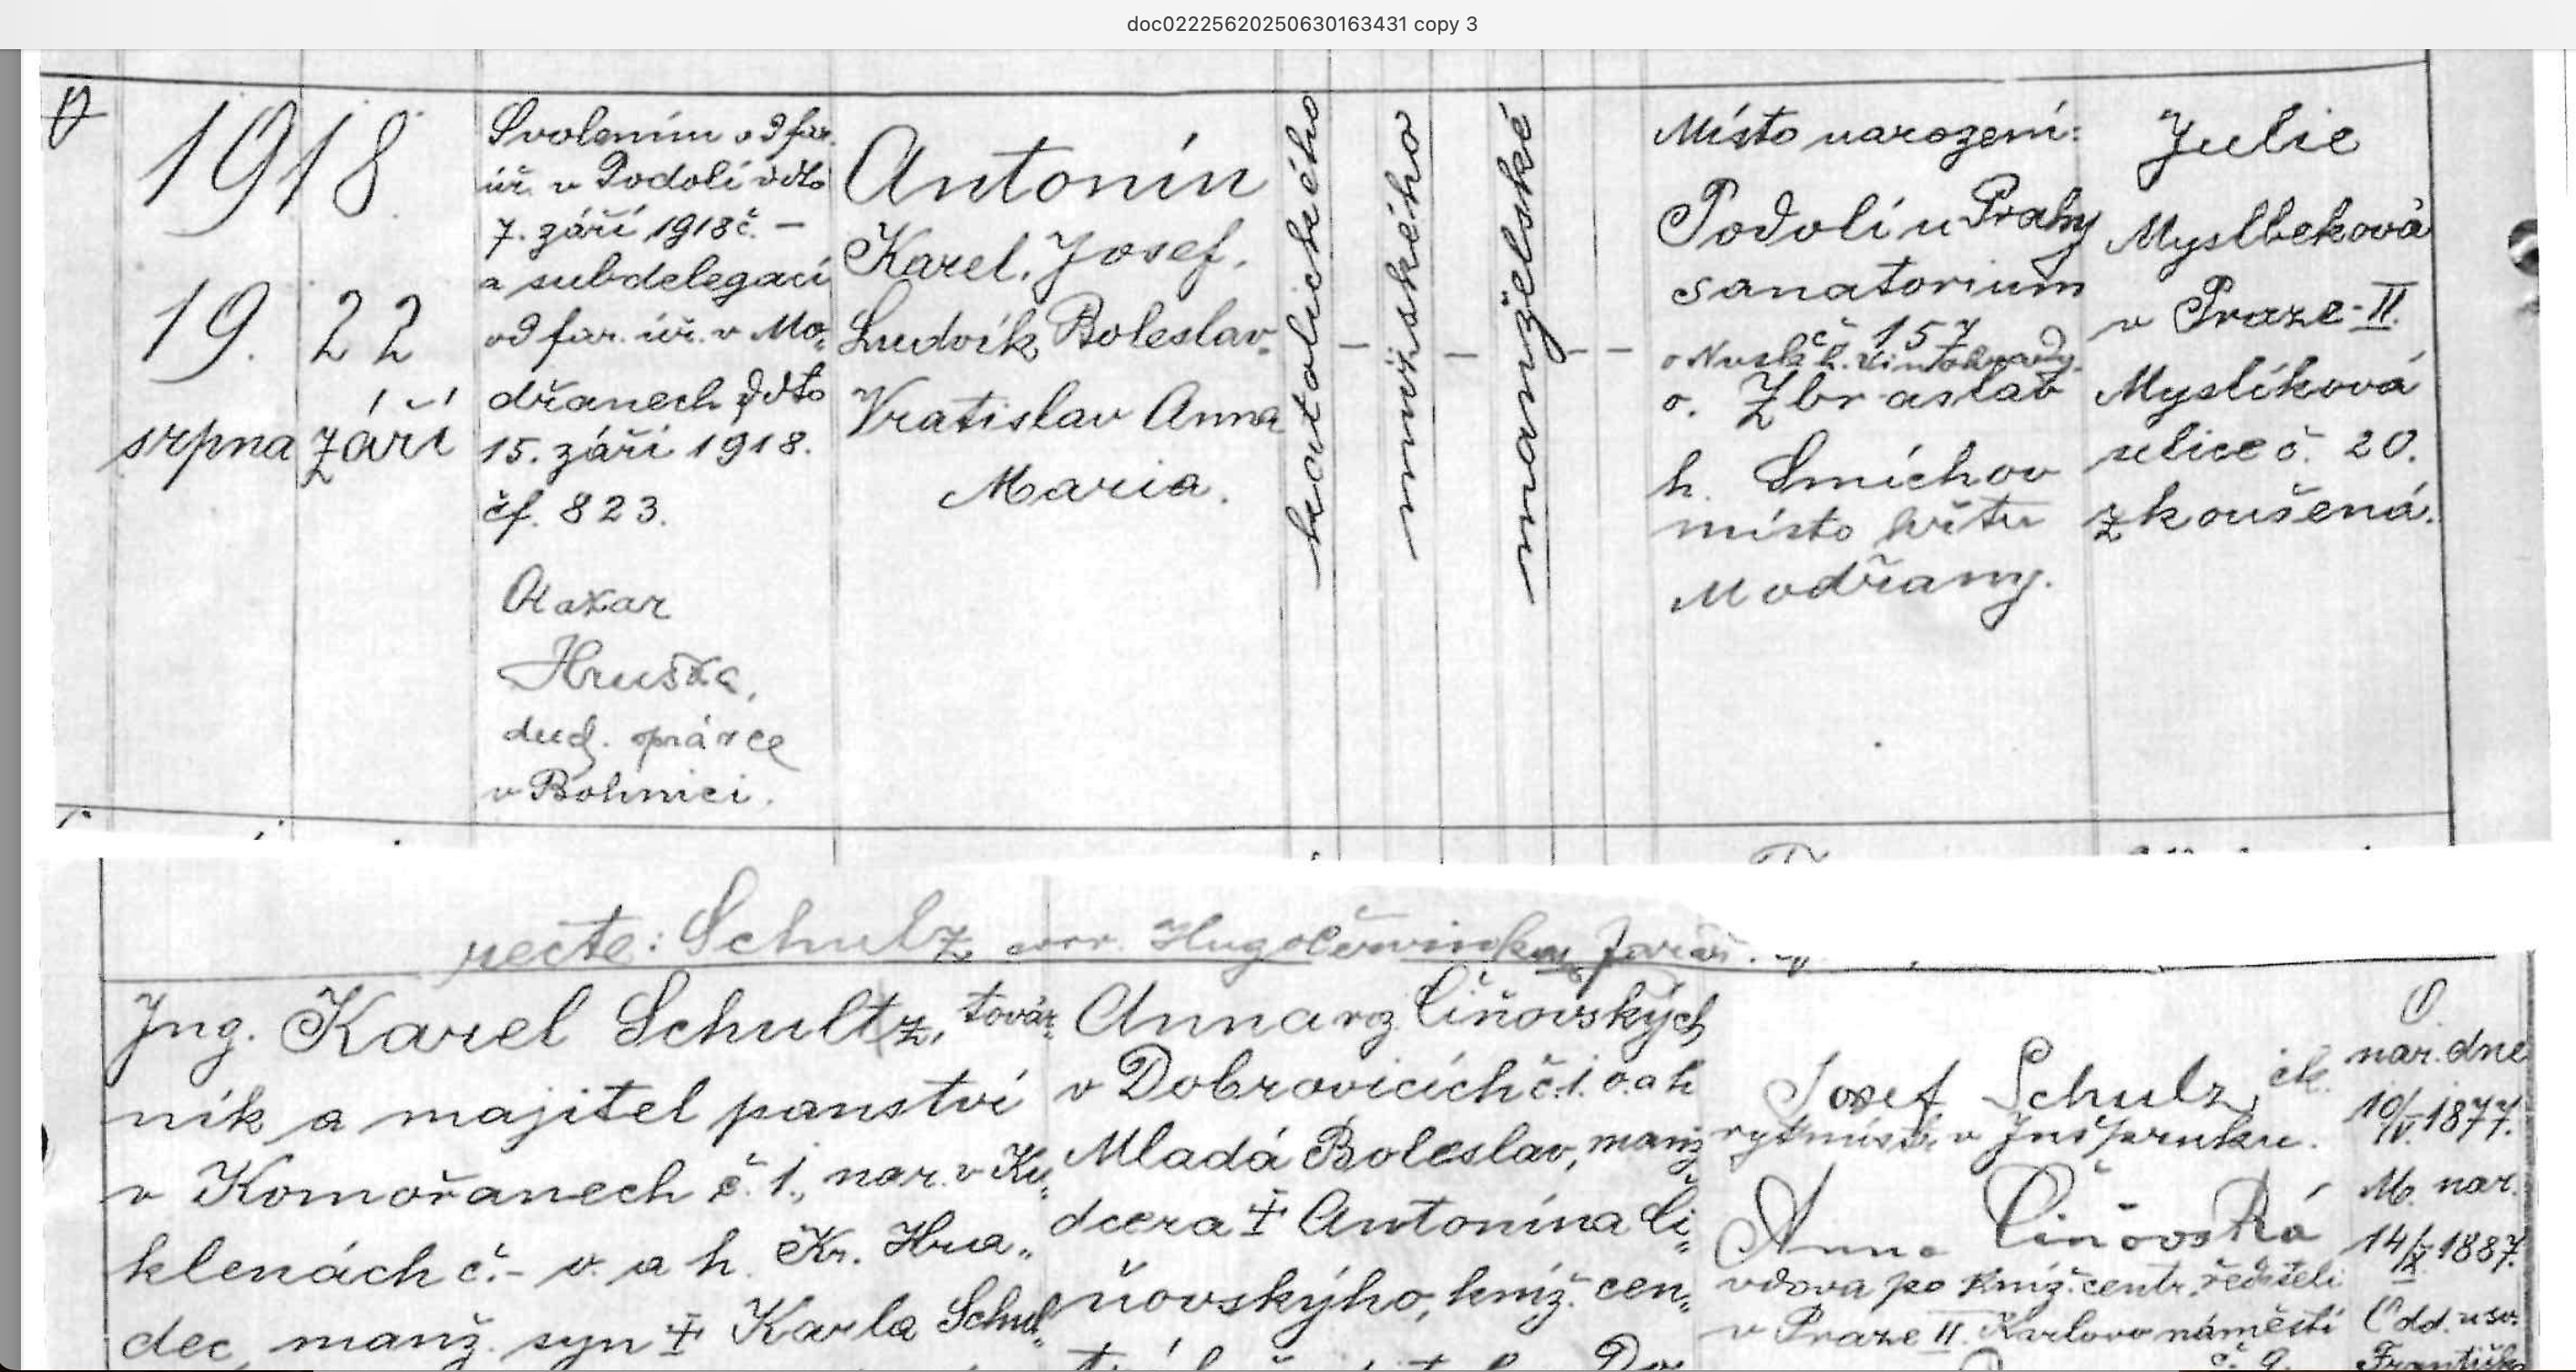 doc02225620250630163431 copy 3
1918
19. 22
srpna září
Svolením od far.
úř. v Podolí ddto
7. září 1918 č. –
a subdelegací
od far. úř. v Mo„
dřanech ddto
15. září 1918.
čj. 823.
Otakar
Hruška,
duch. správce
v Bohnici.
Antonín
Karel, Josef,
Ludvík Boleslav„
Vratislav Anna
Maria.
katolického
–
mužského
–
manželské
– –
Místo narození:
Podolí u Prahy
sanatorium
č 157
o Nusle h. Vinohrady.
o. Zbraslav
h. Smíchov
místo křtu
Modřany.
Julie
Myslbeková
v Praze-II.
Myslíková
ulice č. 20.
zkoušená.
recte: Schulz corr. Hugo Červinka farář.
Ing. Karel Schultz, továr„
ník a majitel panství
v Komořanech č. 1., nar. v Ku„
klenách č.- o. a h. Kr. Hra„
dec, manž. syn ‡ Karla Schul„
Anna roz. Čiňovských
v Dobrovicích č. 1. o. a h
Mladá Boleslav, manž
dcera ‡ Antonína Či„
ňovského, kníž. cen„
Josef Schulz, ck.
rytmistr v Inšpruku.
Anna Čiňovská
vdova po kníž. centr. řediteli
v Praze II. Karlovo náměstí
č. 9.
O.
nar. dne
10/V. 1877.
M. nar.
14/IX. 1887.
Odd. u sv.
Františka